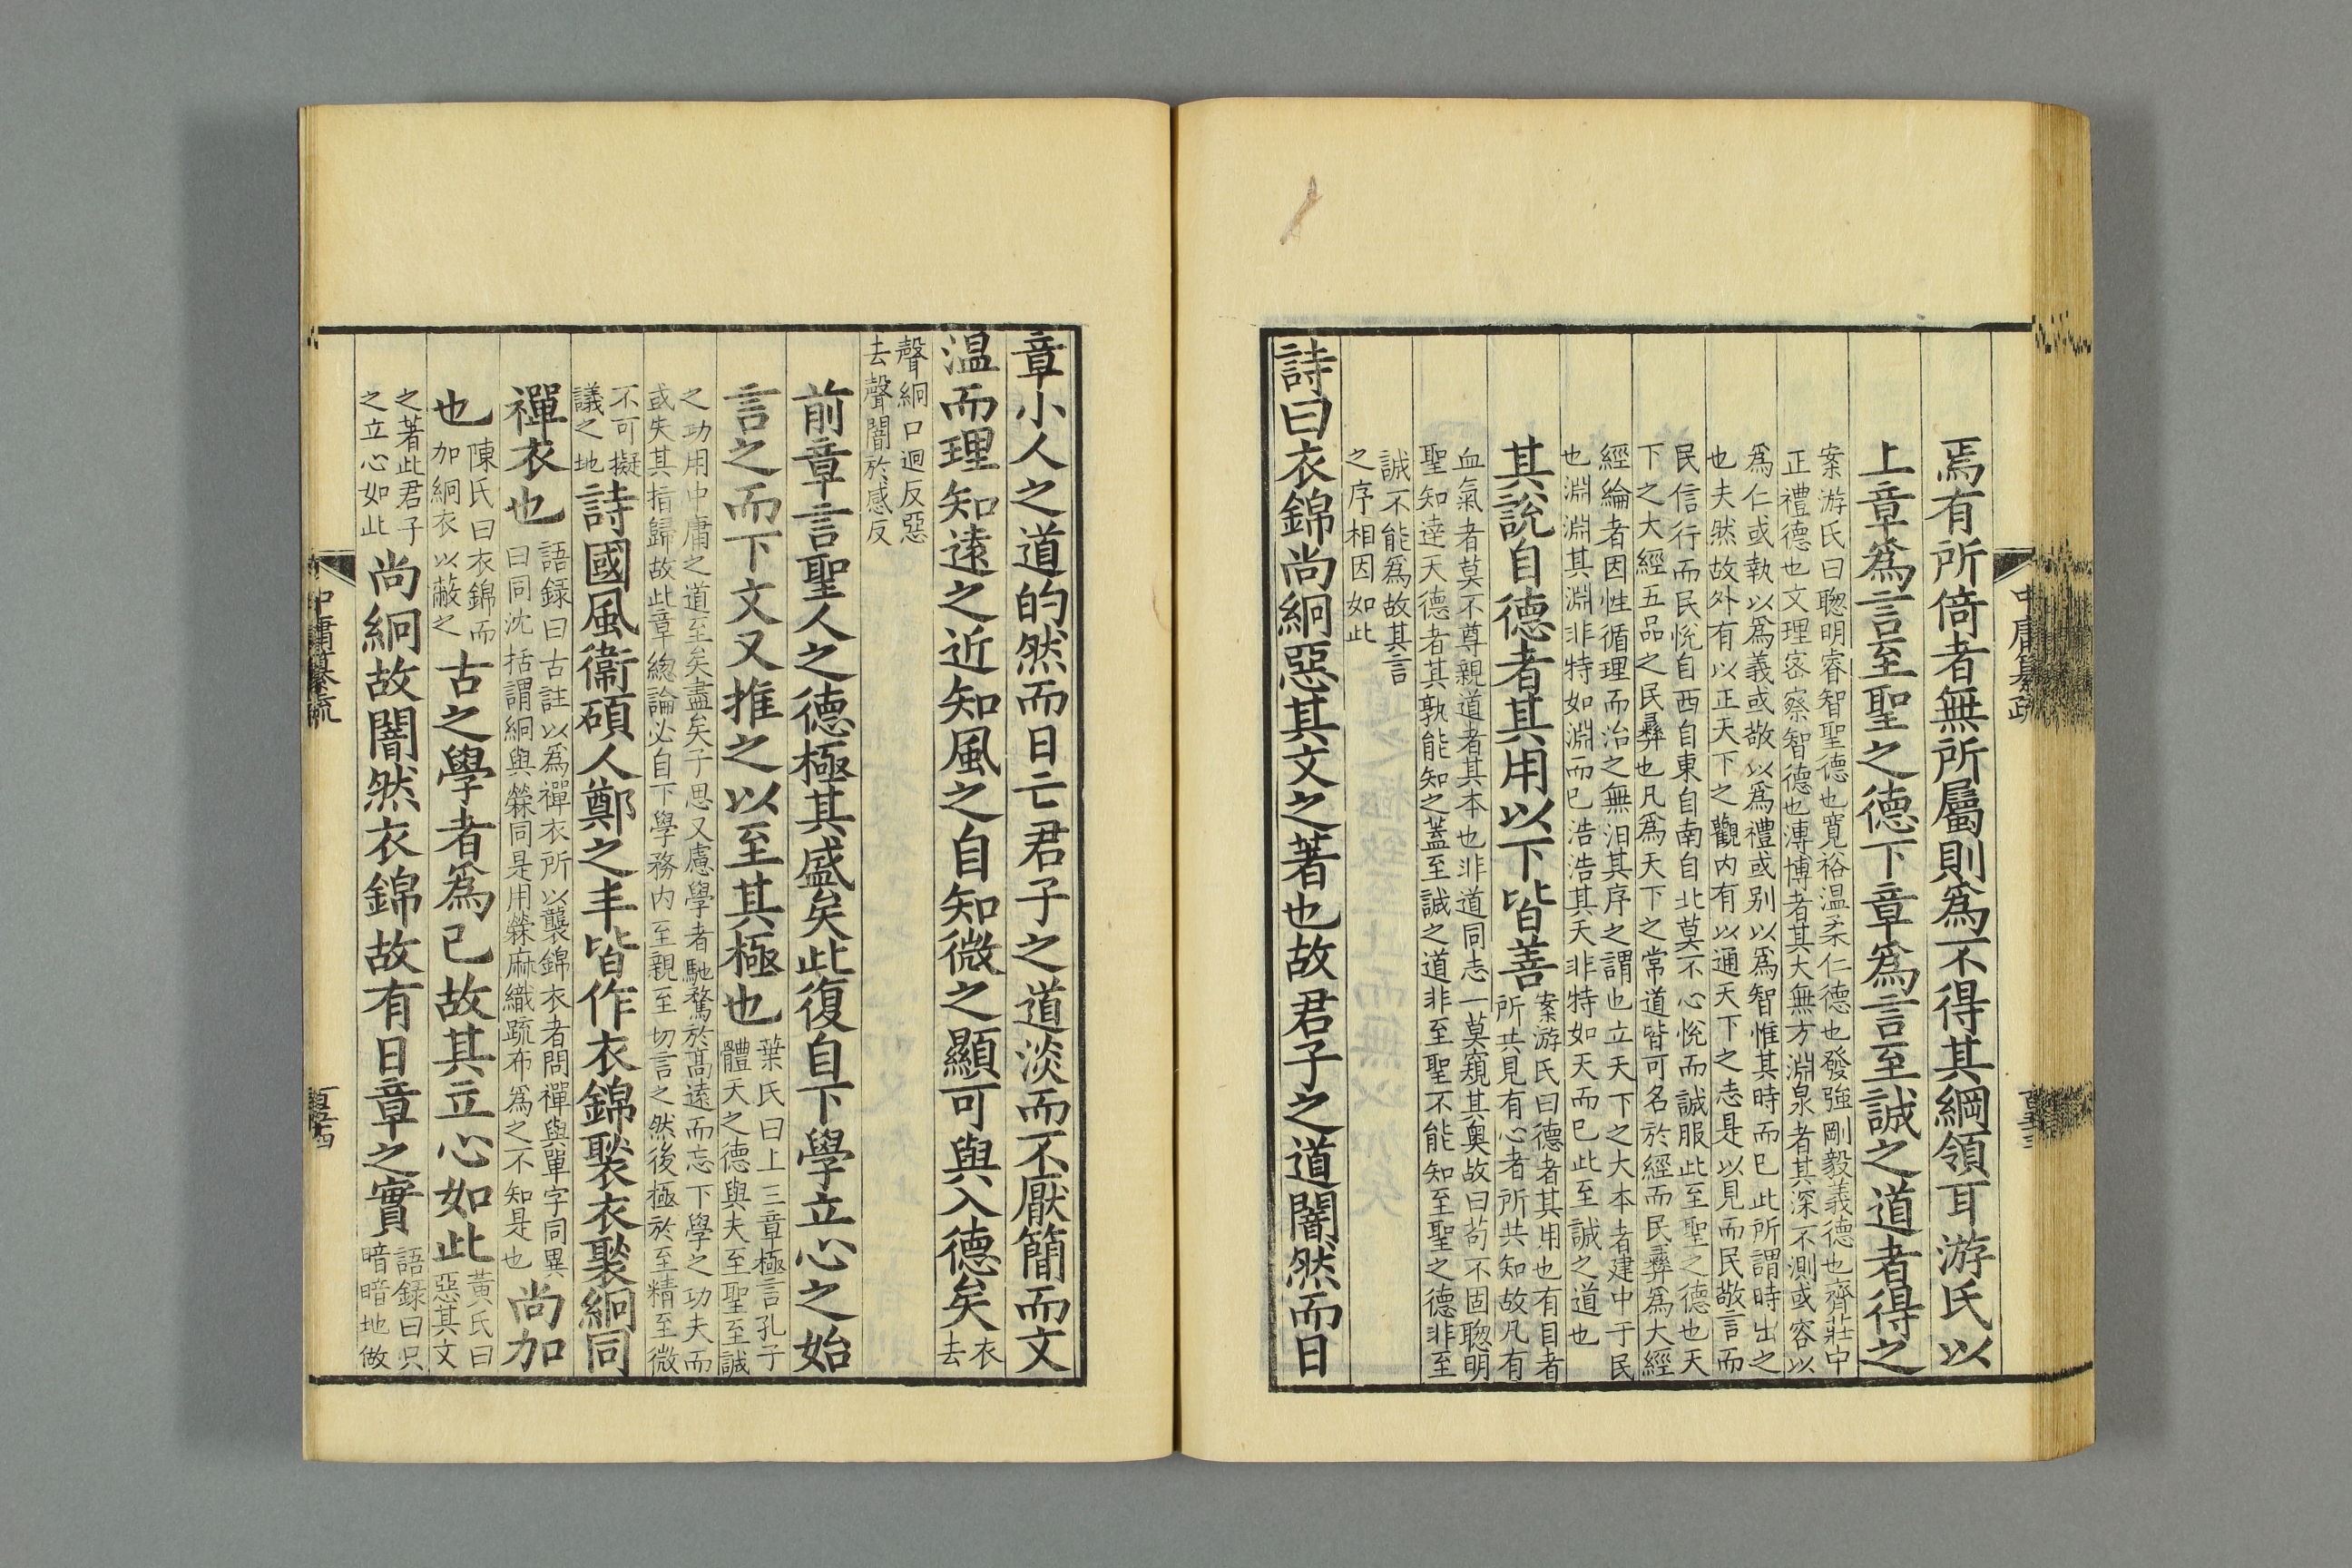 中庸纂疏
焉有所倚者無所屬則爲不得其綱領耳游氏以
上章爲言至聖之德下章爲言至誠之道者得之
案游氏曰聦明睿智聖德也寛裕温柔仁德也發強剛毅義德也齊莊中
正禮德也文理宻察智德也溥博者其大無方淵泉者其深不測或容以
爲仁或執以爲義或敬以爲禮或别以爲智惟其時而已此所謂時出之
也夫然故外有以正天下之觀内有以通天下之志是以見而民敬言而
民信行而民悦自西自東自南自北莫不心悦而誠服此至聖之德也天
下之大經五品之民彝也凡爲天下之常道皆可名於經而民彝爲大經
經綸者因性循理而治之無汨其序之謂也立天下之大本者建中于民
也淵淵其淵非特如淵而已浩浩其天非特如天而已此至誠之道也
其說自德者其用以下皆善
案游氏曰德者其用也有目者
所共見有心者所共知故凡有
血氣者莫不尊親道者其本也非道同志一莫窺其奥故曰苟不固聦明
聖知達天德者其孰能知之蓋至誠之道非至聖不能知至聖之德非至
誠不能爲故其言
之序相因如此
詩曰衣錦尚絅惡其文之著也故君子之道闇然而日
章小人之道的然而日亡君子之道淡而不厭簡而文
温而理知遠之近知風之自知微之顯可與入德矣
衣
去
聲絅口迥反惡
去聲闇於感反
前章言聖人之德極其盛矣此復自下學立心之始
言之而下文又推之以至其極也
葉氏曰上三章極言孔子
體天之德與夫至聖至誠
之功用中庸之道至矣盡矣子思又慮學者馳騖於髙遠而忘下學之功夫而
或失其指歸故此章總論必自下學務内至親至切言之然後極於至精至微
不可擬
議之地
詩國風衞碩人鄭之丰皆作衣錦褧衣褧絅同
襌衣也
語録曰古註以爲襌衣所以襲錦衣者問襌與單字同異
曰同沈括謂絅與檾同是用檾麻織疏布爲之不知是也
尚加
也
陳氏曰衣錦而
加絅衣以蔽之
古之學者爲己故其立心如此
黄氏曰
惡其文
之著此君子
之立心如此
尚絅故闇然衣錦故有日章之實
語録曰只
暗暗地做
中庸纂疏